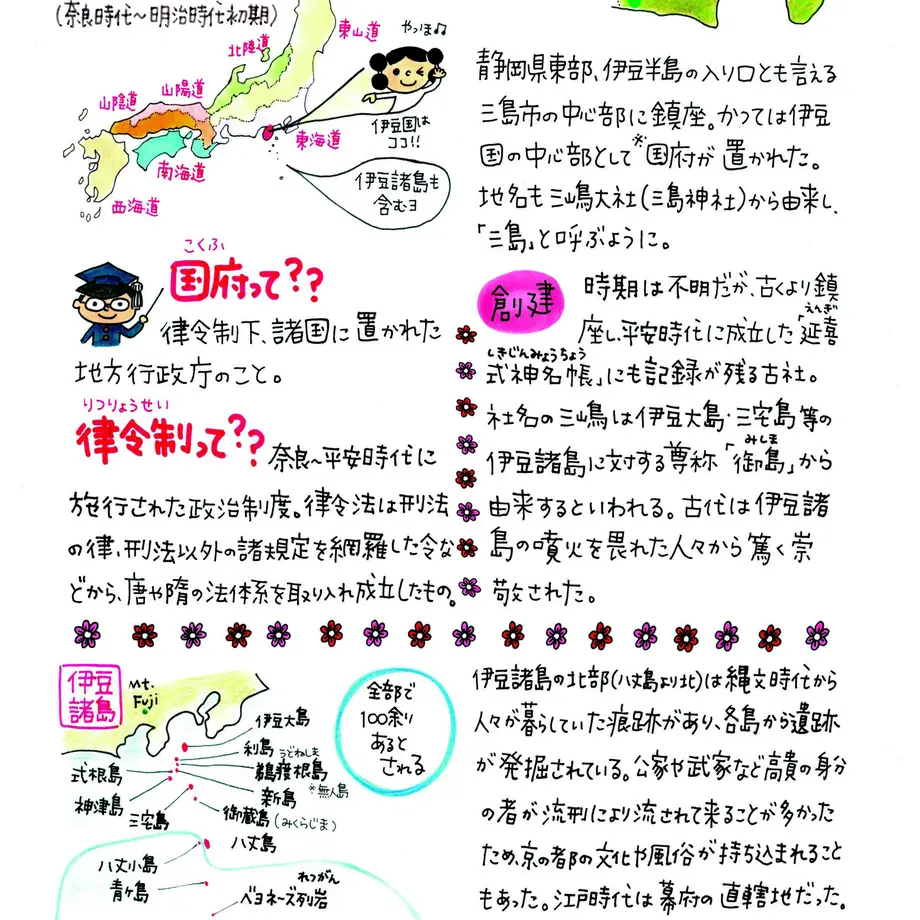 (奈良時代~明治時代初期)
東山道
やっほ♫
北陸道
山陽道
山陰道
東海道
伊豆国は
ココ!!
南海道
伊豆諸島も
含むヨ
西海道
静岡県東部、伊豆半島の入り口とも言える
三島市の中心部に鎮座。かつては伊豆
国の中心部として※国府が置かれた。
地名も三嶋大社(三島神社)から由来し、
「三島」と呼ぶように。
こくふ
国府って??
律令制下、諸国に置かれた
地方行政庁のこと。
りつりょうせい
律令制って??
奈良~平安時代に
施行された政治制度。律令法は刑法
の律、刑法以外の諸規定を網羅した令な
どから、唐や隋の法体系を取り入れ成立したもの。
創建
時期は不明だが、古くより鎮
えんぎ
座し、平安時代に成立した「延喜
しきじんみょうちょう
式神名帳」にも記録が残る古社。
社名の三嶋は伊豆大島・三宅島等の
みしま
伊豆諸島に対する尊称「御島」から
由来するといわれる。古代は伊豆諸
島の噴火を畏れた人々から篤く崇
敬された。
伊豆
諸島
Mt.
Fuji
伊豆大島
利島
うどねしま
鵜渡根島
※無人島
式根島
新島
神津島
三宅島
御蔵島(みくらじま)
八丈島
八丈小島
青ヶ島
れつがん
ベヨネーズ列岩
全部で
100余り
あると
される
伊豆諸島の北部(八丈島より北)は縄文時代から
人々が暮らしていた痕跡があり、各島から遺跡
が発掘されている。公家や武家など高貴の身分
の者が流刑により流されて来ることが多かった
ため、京の都の文化や風俗が持ち込まれること
もあった。江戸時代は幕府の直轄地だった。